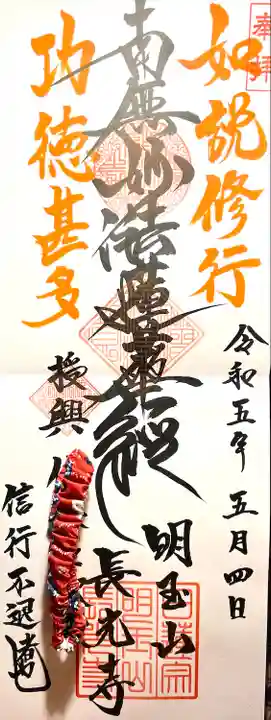 奉拝
如説修行
令和五年五月四日
南無妙法蓮華経
明玉山
長光寺
功徳甚多
授興
信行不退